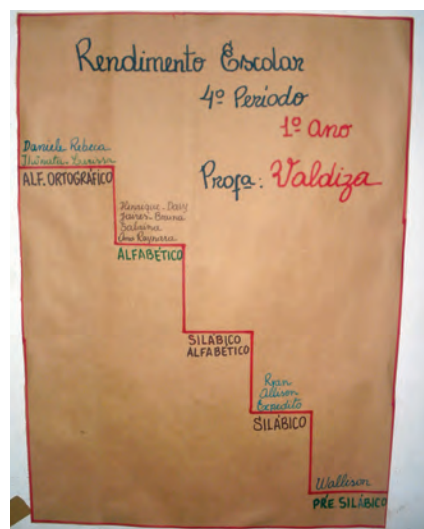 Rendimento Escolar
4º Período
1º ano
Profª: Valdiza
Daniele Rebeca
Larissa
ALF. ORTOGRÁFICO
Henrique - Davy
Bruna
Sabrina
Ana Raynara
ALFABÉTICO
SILÁBICO
ALFABÉTICO
Ryan
Allison
Expedito
SILÁBICO
Wallison
PRÉ SILÁBICO